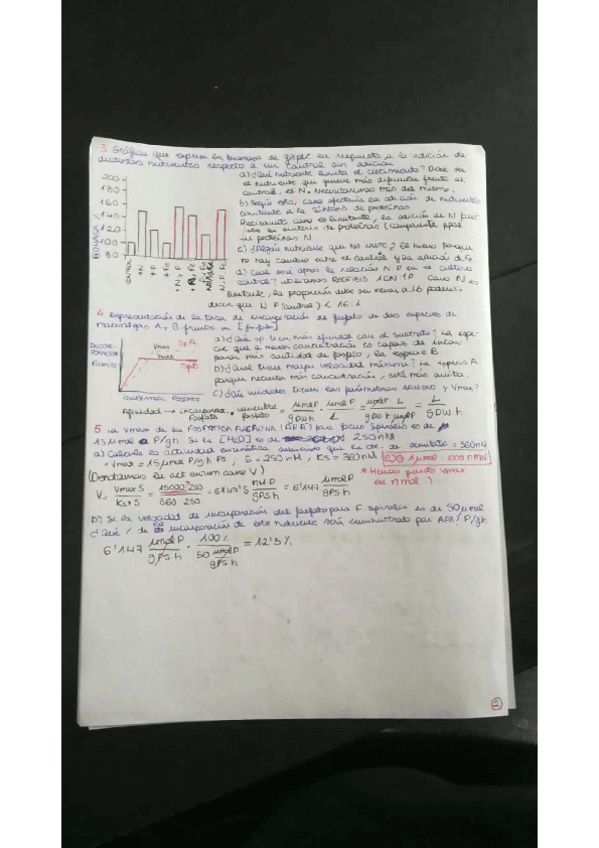 3 Gráfica que expresa la biomasa de fitplc en respuesta a la adición de
distintos nutrientes respecto a un control sin adición
a) ¿Qué nutriente limita el crecimiento? Debe ser
el nutriente que genere más diferencia frente al
control, el N. Necesitaríamos más del mismo.
b) Según esto, cómo afectaría la adición de nutrientes
limitante a la síntesis de proteínas
Precisamente como es limitante, la adición de N
en síntesis de proteínas (componente ppal
de proteínas N
c) ¿Según nutriente que no limite? El hierro porque
no hay cambio entre el control y la adición de Fe
d) Cuál será aprox la relación N:P en el cultivo
control? Utilizamos REDFIELD 16N:1P Como N es
limitante, la proporción debe ser menor a 16 podemos
decir que N:P (control) < 16:1
BIOMASA %
200
180
160
140
120
100
80
CONTROL
+N
+P
+Fe
+N+P
+N+Fe
+P+Fe
N+P+Fe
4 Representación de la tasa de incorporación de fosfato de dos especies de
macroalgas A y B frente a [fosfato]
a) ¿Qué sp tiene más afinidad con el sustrato? La espe-
cie que a menor concentración es capaz de incor-
porar más cantidad de fosfato, la especie B.
b) ¿Cuál tiene mayor velocidad máxima? La especie A
porque necesita más concentración, está más arriba.
c) ¿Qué unidades tienen los parámetros afinidad y Vmax?
Vmax SpA
Vmax SpB
INCORPORACIÓN
FOSFATO
CONCENTRAC. FOSFATO
Afinidad → incorporac. fosfato · concentrac fosfato = μmol P / g DW h · μmol P / L = μmol P / g DW h · L / μmol P = L / g DW h
5 La Vmax de la FOSFATASA ALCALINA (APA) para Fucus spiralis es de
15 μmol P/gh. Si la [H2O] es de 250 nM
a) Calcula la actividad enzimática sabiendo que la cte de semisatc = 360 nM
- Vmax = 15 μmol P/gh PS, S = 250 nM, Ks = 360 nM
OJO 1 μmol = 1000 nmol
(Denotamos la act enzim como V)
* Hemos puesto Vmax
en nmol :)
V = Vmax·S / Ks+S = 15000·250 / 360+250 = 6147'5 nM P / gPS h = 6'147 μmol P / gPS h
b) Si la velocidad de incorporación del fosfato para F. spiralis es de 50 μmol
P/gh
¿Qué % de la incorporación de este nutriente será suministrado por APA?
6'147 μmol P / gPS h · 100% / 50 μmol P / gPS h = 12'3%
2